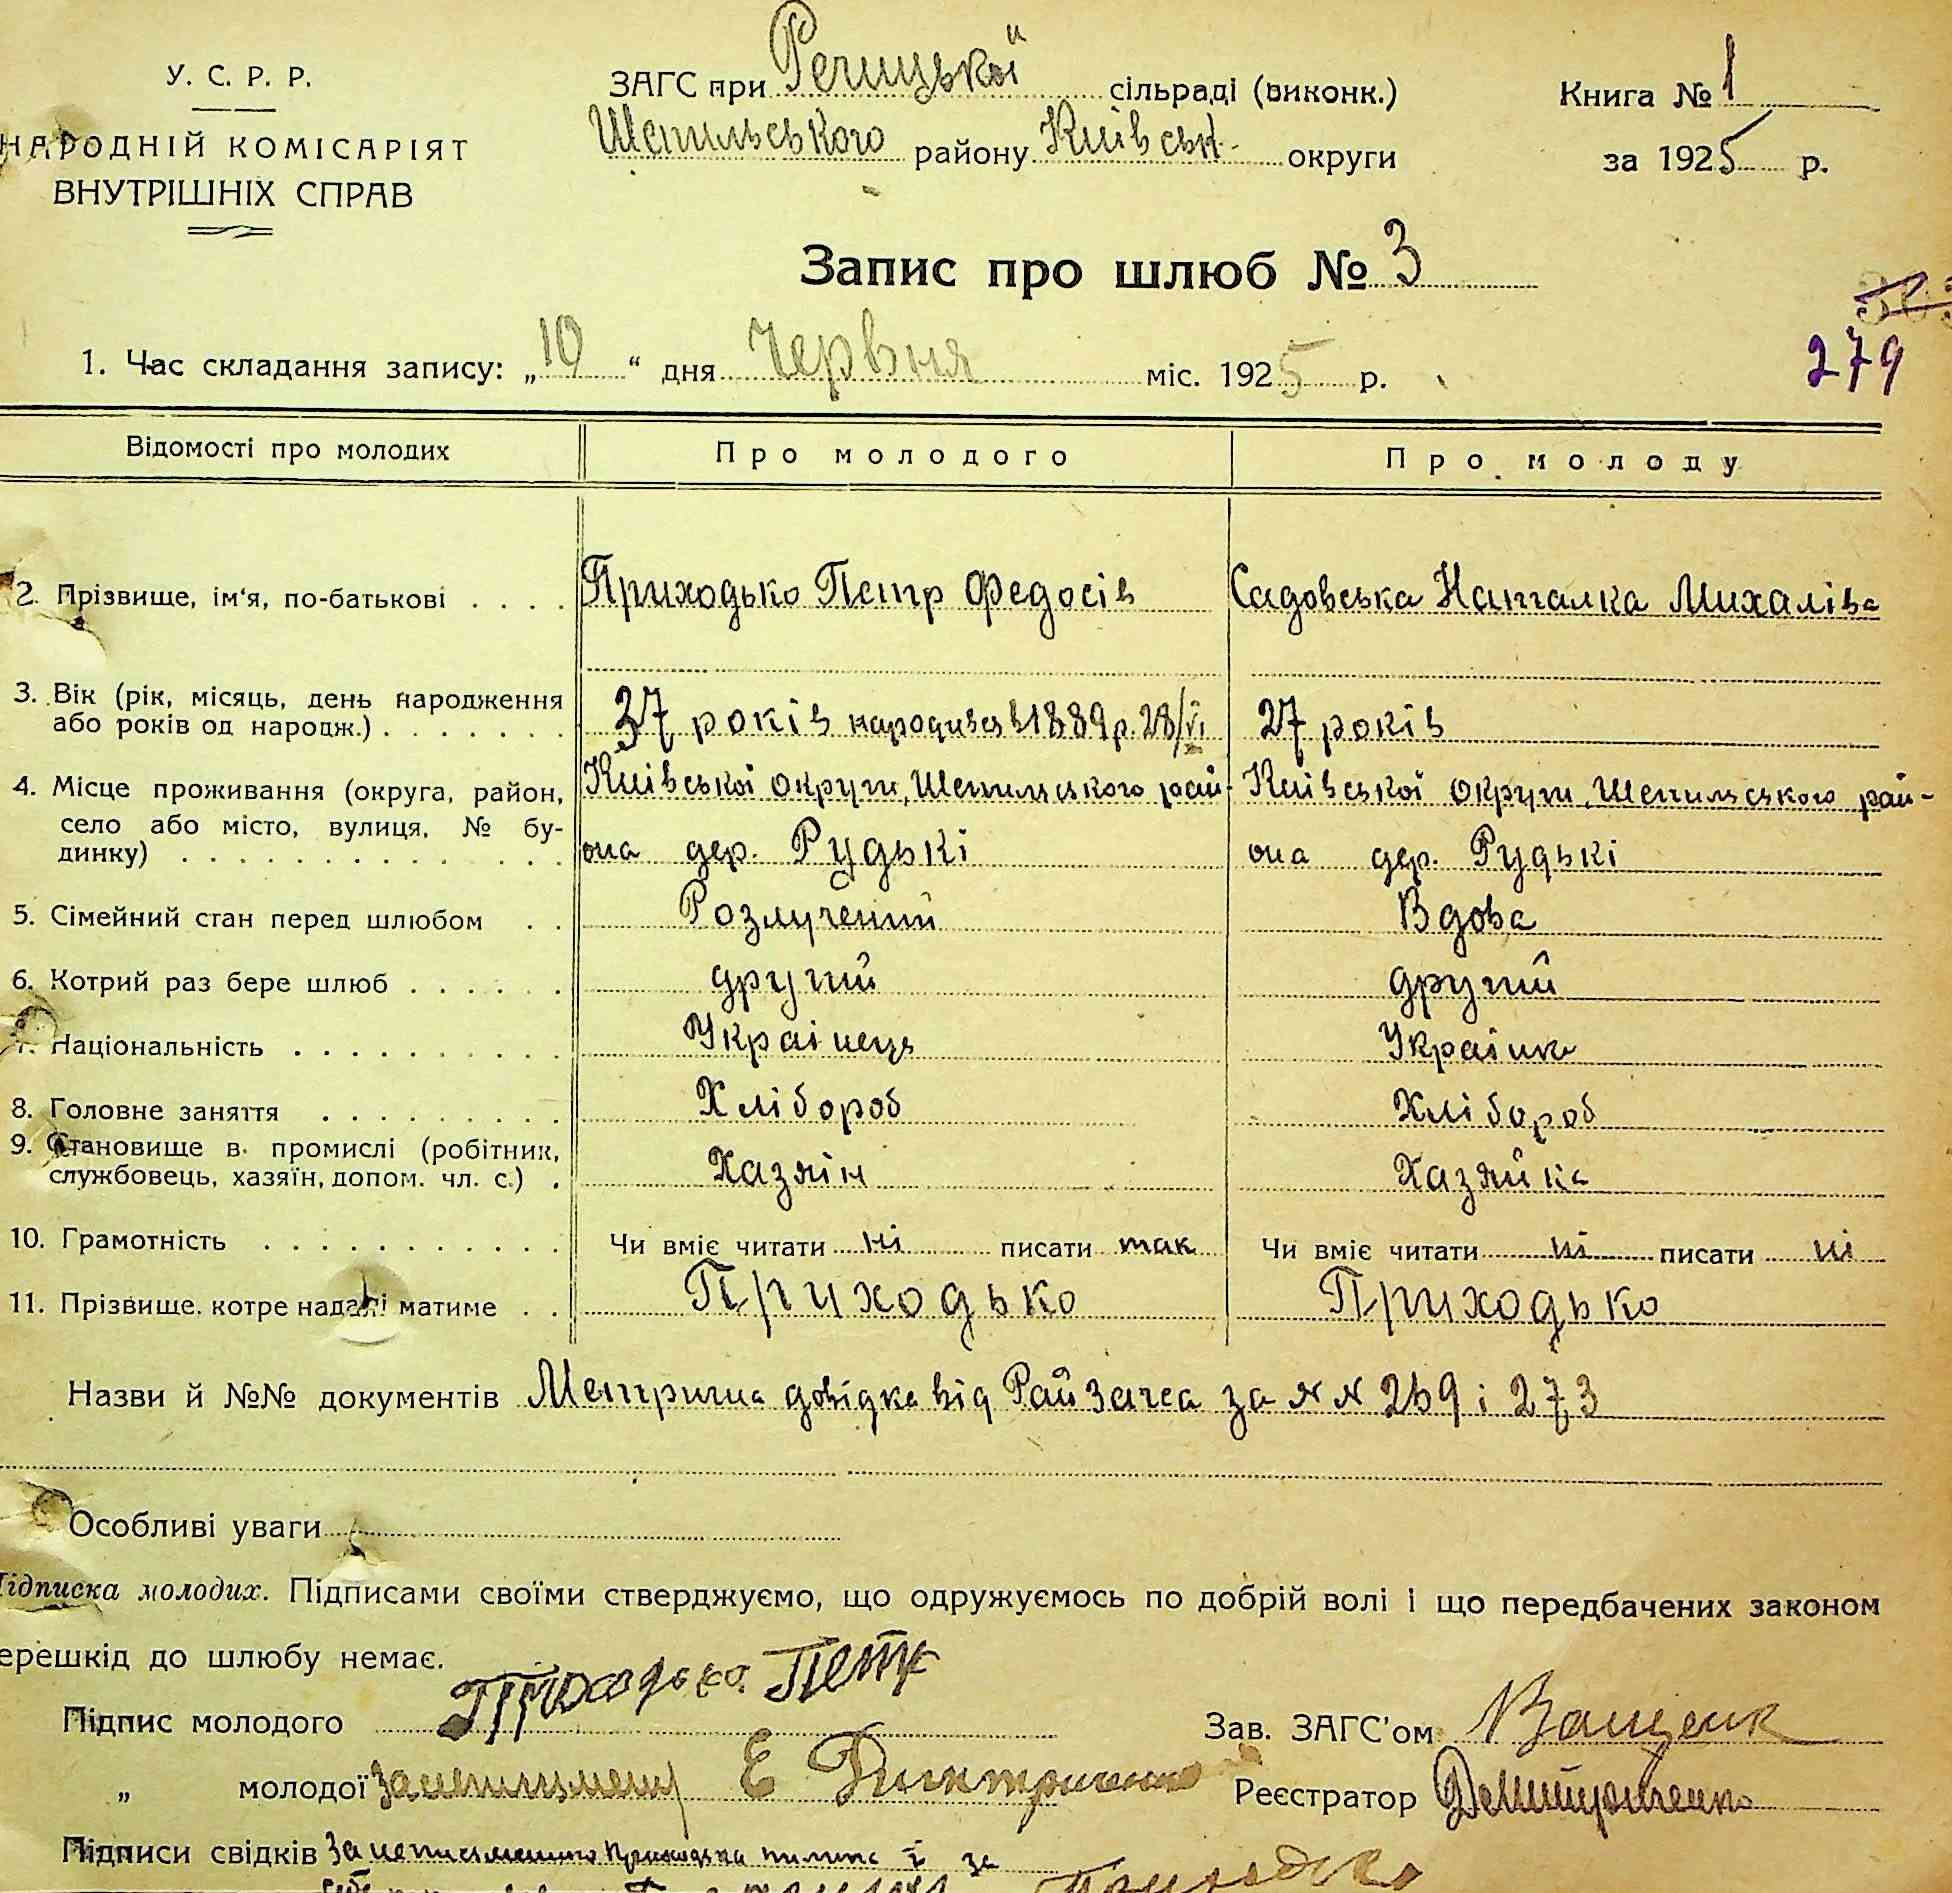 У. С. Р. Р.
НАРОДНІЙ КОМІСАРІЯТ
ВНУТРІШНІХ СПРАВ
ЗАГС при Речицькой сільраді (виконк.)
Шепильського району Київськ. округи
Книга № 1
за 1925 р.
Запис про шлюб № 3
279
1. Час складання запису: „10“ дня Червня міс. 1925 р.
Відомості про молодих Про молодого Про молоду
2. Прізвище, ім'я, по-батькові . . . . Приходько Петр Федосів Садовська Наталка Михаліва
3. Вік (рік, місяць, день народження
або років од народж.) . . . . . . . 37 років народивсь в 1889 р. 28/VI 27 років
4. Місце проживання (округа, район, Київської округи, Шепильського рай- Київської округи, Шепильського рай-
село або місто, вулиця, № бу-
динку) . . . . . . . . . . . . . она дер. Рудькі она дер. Рудькі
5. Сімейний стан перед шлюбом . . Розлучений Вдова
6. Котрий раз бере шлюб . . . . . . другий другий
7. Національність . . . . . . . . . . Українець Українка
8. Головне заняття . . . . . . . . . Хлібороб Хлібороб
9. Становище в промислі (робітник,
службовець, хазяїн, допом. чл. с.) . Хазяїн Хазяйка
10. Грамотність . . . . . . . . . . . Чи вміє читати ні писати так Чи вміє читати ні писати ні
11. Прізвище, котре надалі матиме . . Приходько Приходько
Назви й №№ документів Метрична довідка від Райзагса за № № 269 і 273
Особливі уваги
Підписка молодих. Підписами своїми стверджуємо, що одружуємось по добрій волі і що передбачених законом
перешкід до шлюбу немає.
Підпис молодого Приходько Петр
Зав. ЗАГС'ом Ващенк
„ молодої Е Дмитриченко
Реєстратор Дмитриченко
Підписи свідків За неписьменного Приходька і за
Приходько